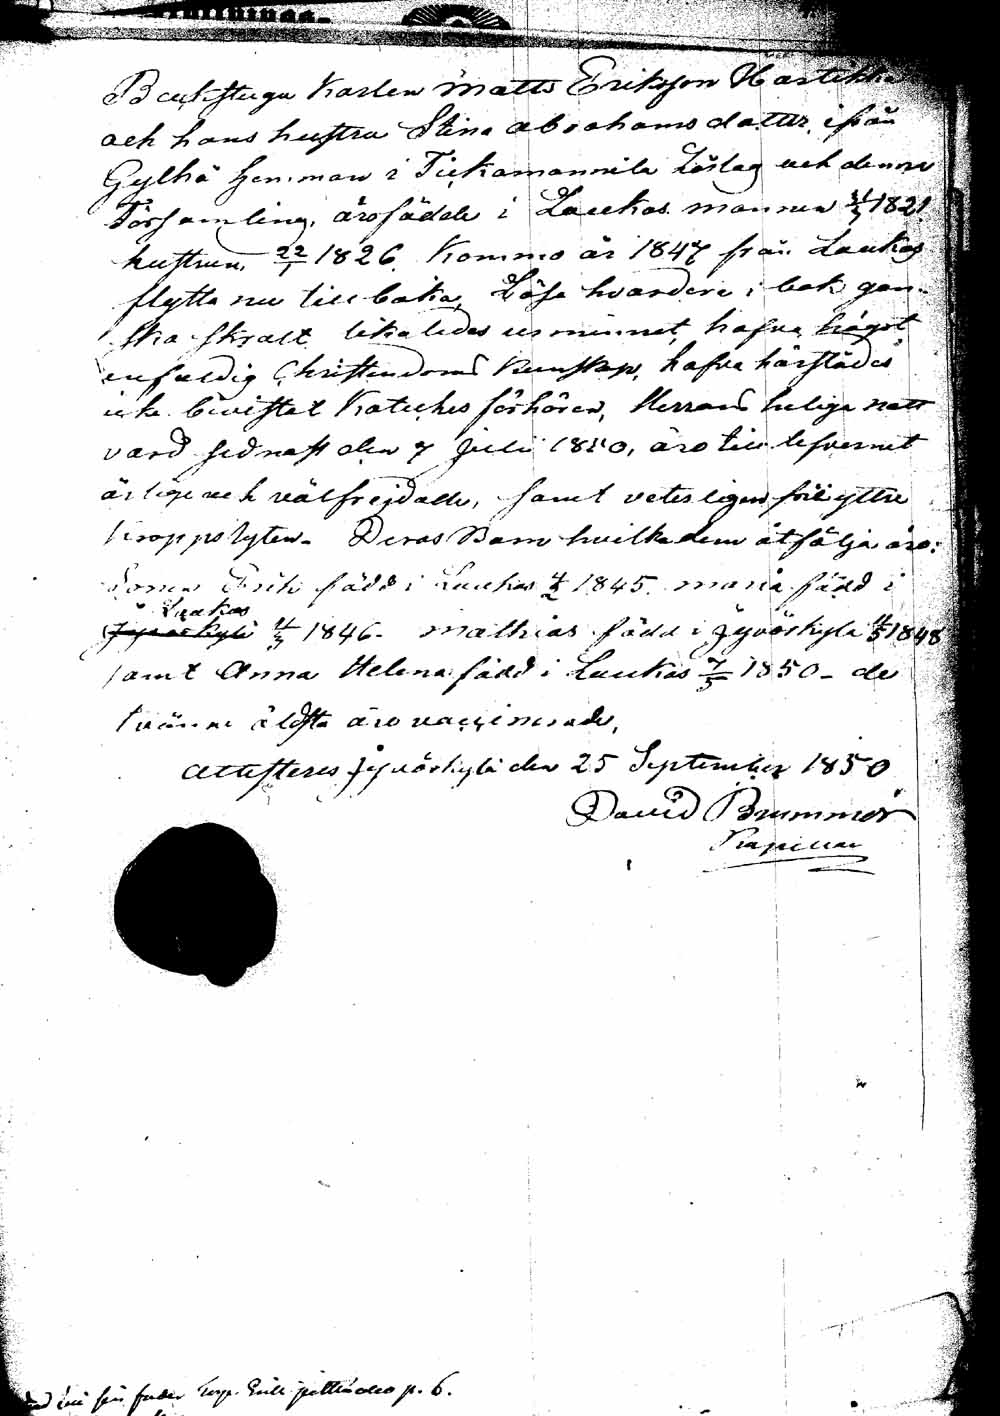 Backstugu Karlen Matts Eriksson Hartikka
och hans hustru Stina Abrahamsdotter, ifrån
Gylhä hemman i Tickamannila Löslag och denna
Församling, äro födde i Laukas mannen 1821
hustrun, 22/1 1826. Kommo år 1847 från Laukas
flytta nu tillbaka, Läsa hvardera i bok gan-
ska skralt likaledes ur minnet, hafva något
enfaldig Christendoms Kunskap, hafva härstädes
icke bevistat Katekes förhören, Herrans heliga natt
vard sednast den 7 Juli 1850, äro till lefvernet
ärlige och välfrejdade, samt veterligen fri yttre
kroppslyten. Deras Barn hvilka dem åtfölja äro:
Sonen Erik född i Laukas 1845. Maria född i
Laukas
Jyväskylä 1846. Mathias född i Jyväskylä 1848
samt Anna Helena född i Laukas 7/5 1850 - de
tvänne äldsta äro vaccinerade,
Attesteres Jyväskylä den 25 September 1850
David Brummer
Kapellan
sin fader Torp. Erik p. 6.